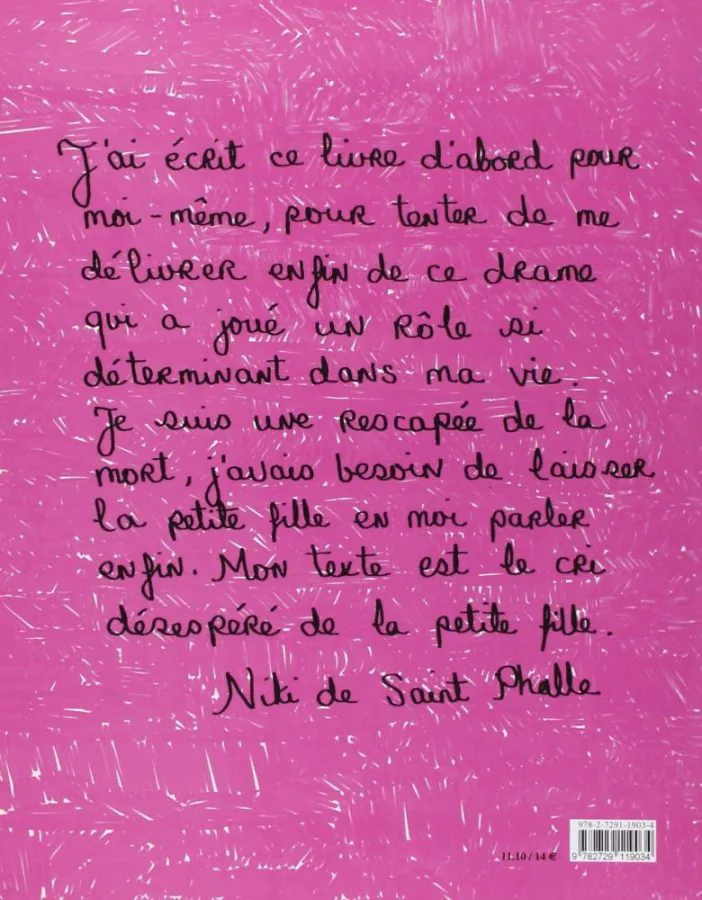 J'ai écrit ce livre d'abord pour
moi-même, pour tenter de me
délivrer enfin de ce drame
qui a joué un rôle si
déterminant dans ma vie.
Je suis une rescapée de la
mort, j'avais besoin de laisser
la petite fille en moi parler
enfin. Mon texte est le cri
désespéré de la petite fille.
Niki de Saint Phalle
978-2-7291-1903-4
11.10 / 14 €
9 782729 119034